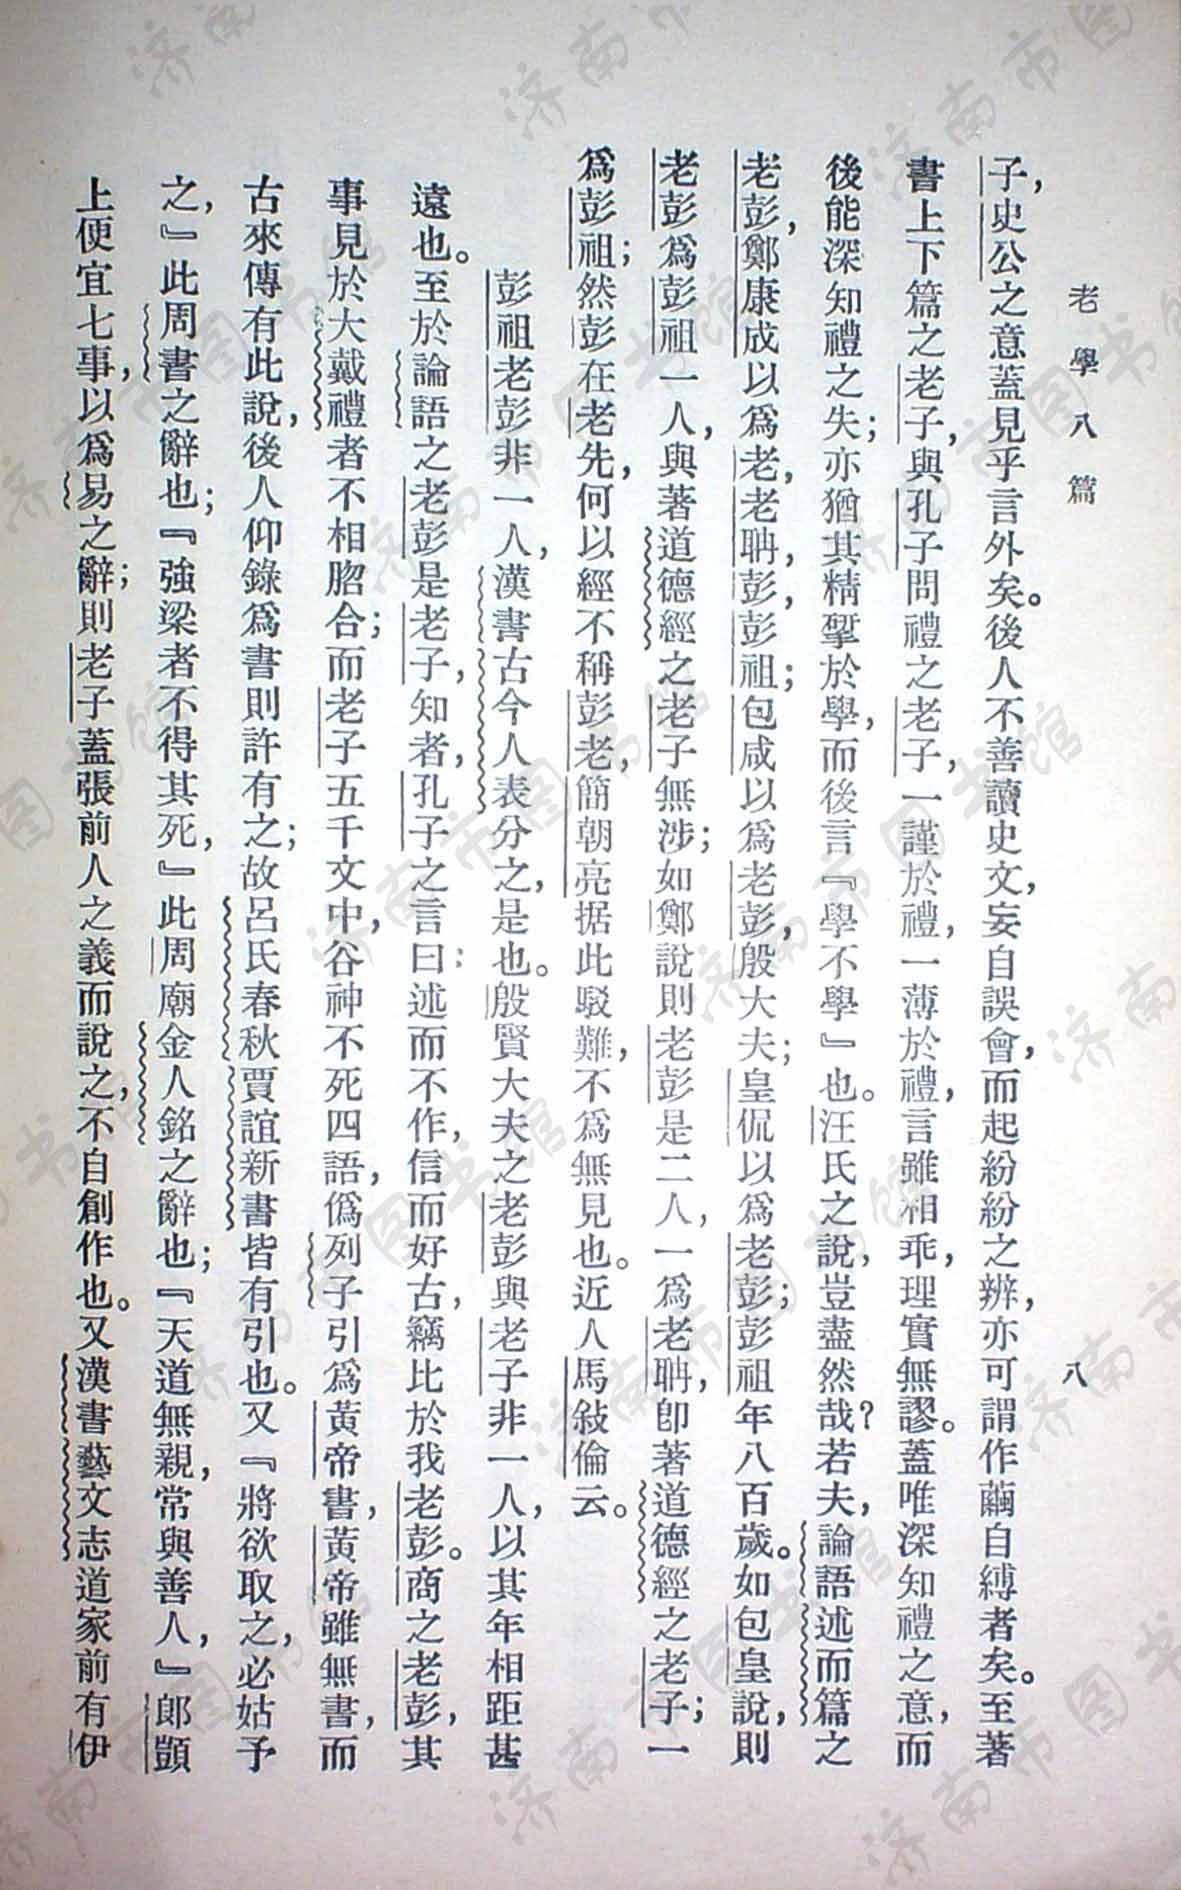 老學八篇
八
子，史公之意蓋見乎言外矣。後人不善讀史文，妄自誤會，而起紛紛之辨，亦可謂作繭自縛者矣。至著
書上下篇之老子，與孔子問禮之老子，一謹於禮，一薄於禮，言雖相乖，理實無謬。蓋唯深知禮之意，而
後能深知禮之失；亦猶其精揅於學，而後言『學不學』也。汪氏之說，豈盡然哉？若夫，論語述而篇之
老彭，鄭康成以爲老，老聃，彭，彭祖；包咸以爲老彭，殷大夫；皇侃以爲老彭；彭祖年八百歲。如包皇說，則
老彭爲彭祖一人，與著道德經之老子無涉；如鄭說則老彭是二人，一爲老聃，卽著道德經之老子；一
爲彭祖；然彭在老先，何以經不稱彭老，簡朝亮据此駁難，不爲無見也。近人馬敍倫云。
彭祖老彭非一人，漢書古今人表分之，是也。殷賢大夫之老彭與老子非一人，以其年相距甚
遠也。至於論語之老彭是老子，知者，孔子之言曰：述而不作，信而好古，竊比於我老彭。商之老彭，其
事見於大戴禮者不相脗合；而老子五千文中，谷神不死四語，僞列子引爲黃帝書，黃帝雖無書，而
古來傳有此說，後人仰錄爲書則許有之；故呂氏春秋賈誼新書皆有引也。又『將欲取之，必姑予
之，』此周書之辭也；『強梁者不得其死，』此周廟金人銘之辭也；『天道無親，常與善人，』郎顗
上便宜七事，以爲易之辭；則老子蓋張前人之義而說之，不自創作也。又漢書藝文志道家前有伊